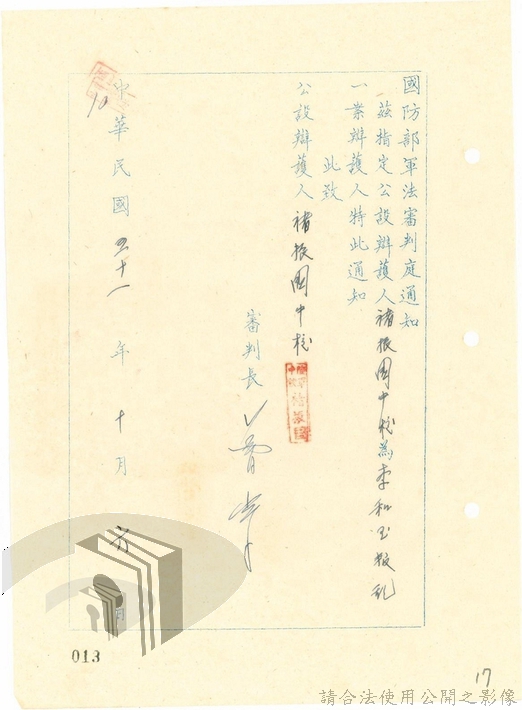 國防部軍法審判庭通知
茲指定公設辯護人褚振國中校為李和玉叛乱
一案辯護人特此通知
此致
公設辯護人褚振國中校
審判長
中華民國五十一年十月六日
10
013
17
請合法使用公開之影像